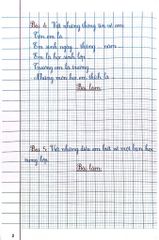 Bài 4: Viết những thông tin về em:
Tên em là
Em sinh ngày ... tháng ... năm ...
Em là học sinh lớp
Trường em là trường
Những môn học em thích là
Bài làm
Bài 5: Viết những điều em biết về một bạn học
cùng lớp.
Bài làm